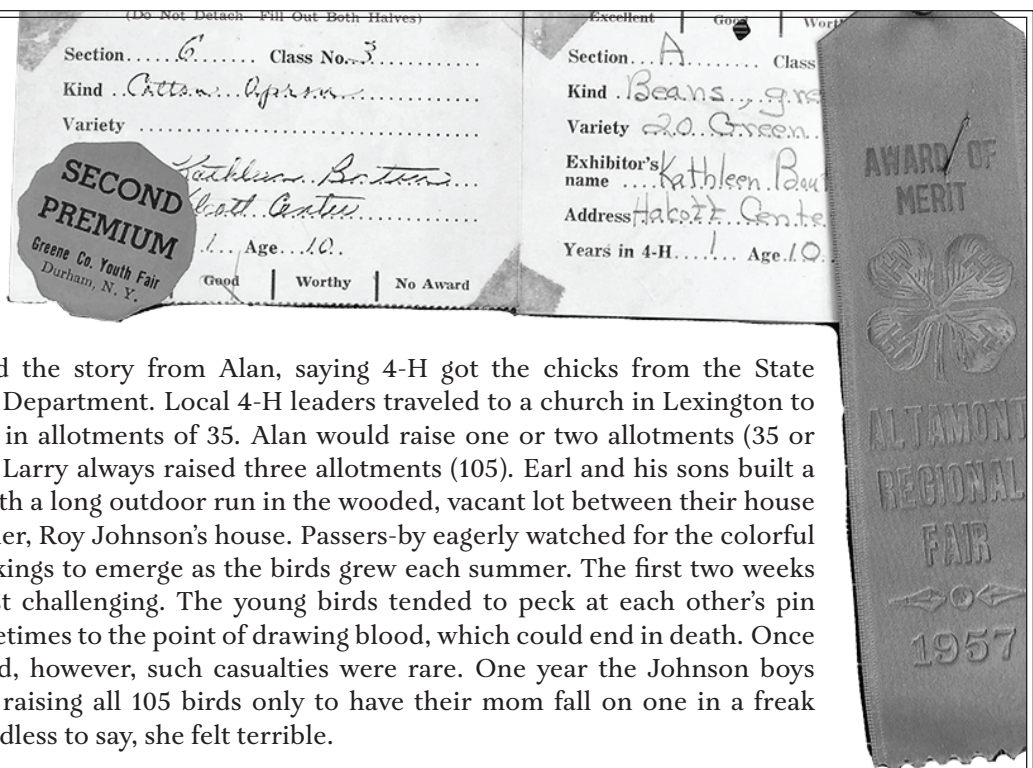 (Do Not Detach Fill Out Both Halves)
Section...... 6 ...... Class No... 3 ............
Kind .. Cotton .. Apron ..............
Variety ......................................
Kathleen
Center
1 ... Age... 10 .
Good | Worthy | No Award
SECOND
PREMIUM
Greene Co. Youth Fair
Durham, N. Y.
Excellent | Good | Wort
Section... A ........ Class
Kind . Beans .., gre
Variety 20 Green .
Exhibitor's
name .... Kathleen . Bou
Address Halcott Cente
Years in 4-H .... 1 .... Age . 10 .
AWARD OF
MERIT
H H H H
ALTAMONT
REGIONAL
FAIR
1957
d the story from Alan, saying 4-H got the chicks from the State
Department. Local 4-H leaders traveled to a church in Lexington to
in allotments of 35. Alan would raise one or two allotments (35 or
Larry always raised three allotments (105). Earl and his sons built a
th a long outdoor run in the wooded, vacant lot between their house
er, Roy Johnson's house. Passers-by eagerly watched for the colorful
kings to emerge as the birds grew each summer. The first two weeks
st challenging. The young birds tended to peck at each other's pin
etimes to the point of drawing blood, which could end in death. Once
d, however, such casualties were rare. One year the Johnson boys
raising all 105 birds only to have their mom fall on one in a freak
dless to say, she felt terrible.